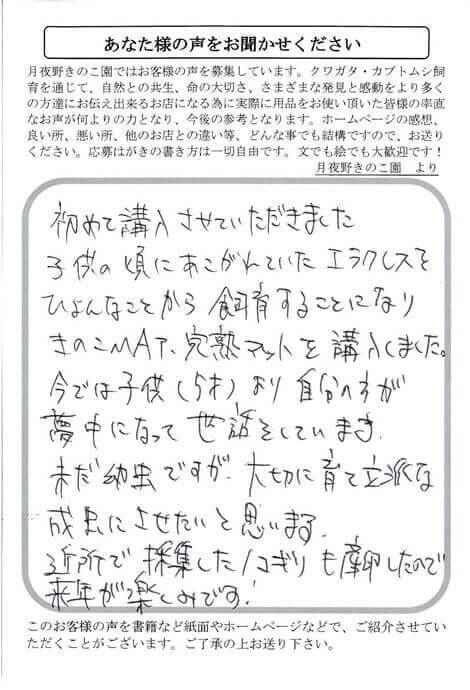 あなた様の声をお聞かせください
月夜野きのこ園ではお客様の声を募集しています。クワガタ・カブトムシ飼
育を通じて、自然との共生、命の大切さ、さまざまな発見と感動をより多く
の方達にお伝え出来るお店になる為に実際に用品をお使い頂いた皆様の率直
なお声が何よりの力となり、今後の参考となります。ホームページの感想、
良い所、悪い所、他のお店との違い等、どんな事でも結構ですので、お送り
ください。応募はがきの書き方は一切自由です。文でも絵でも大歓迎です！
月夜野きのこ園　より
初めて講入させていただきました
子供の頃にあこがれていたエラクレスを
ひょんなことから飼育することになり
きのこMAT、完熟マットを講入しました。
今では子供（5才）より自分の方が
夢中になって世話をしています。
未だ幼虫ですが、大切に育て立派な
成虫にさせたいと思います。
近所で採集したノコギリも産卵したので
来年が楽しみです！
このお客様の声を書籍など紙面やホームページなどで、ご紹介させてい
ただくことがございます。ご了承の上お送り下さい。